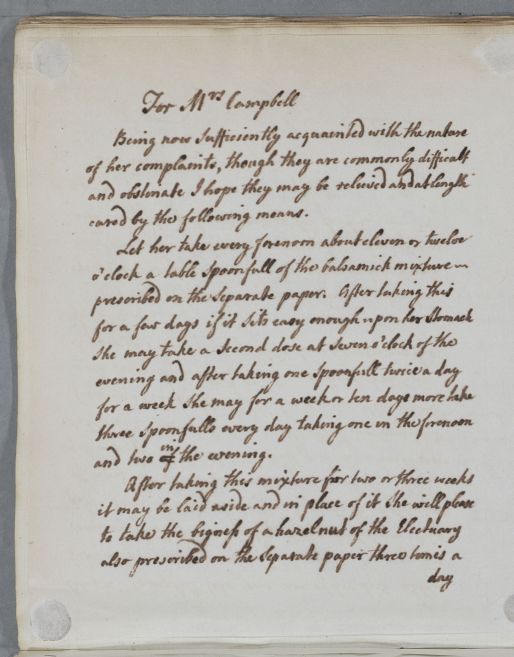 For Mrs Campbell
Being now Sufficiently acquainted with the nature
of her complaints, though they are commonly difficult
and obstinate I hope they may be relieved and at length
cured by the following means.
Let her take every forenoon about eleven or twelve
o'clock a table Spoonfull of the balsamick mixture
prescribed on the Separate paper. After taking this
for a few days if it Sits easy enough upon her Stomach
She may take a Second dose at Seven o'clock of the
evening and after taking one Spoonfull twice a day
for a week She may for a week or ten days more take
three Spoonfulls every day taking one in the forenoon
and two in of the evening.
After taking this mixture for two or three weeks
it may be laid aside and in place of it She will please
to take the bigness of a hazel nut of the Electuary
also prescribed on the Separate paper three times a
day